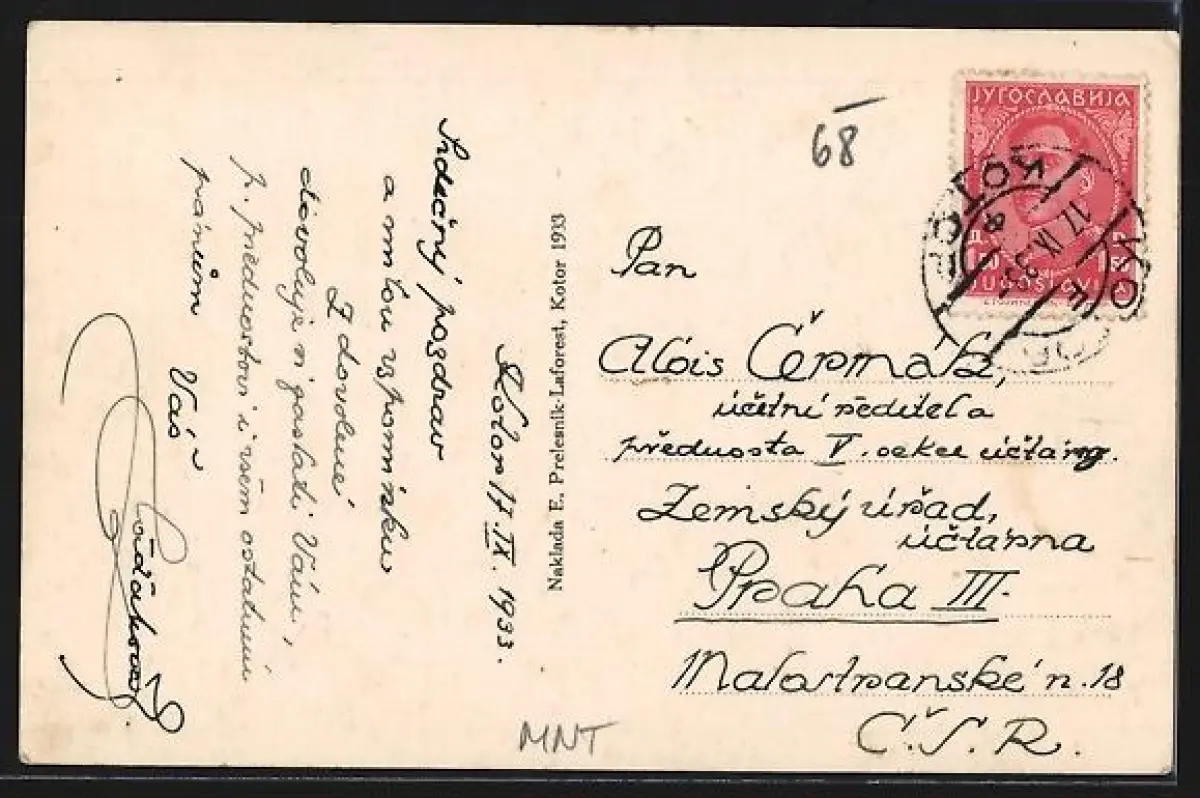 Kotor 17.IX. 1933.
Srdečný pozdrav
a milou vzpomínku
Z dovolené
dovoluje si zaslati Vám,
p. přednostovi i všem ostatním
pánům Váš
Naklada E. Prelesnik-Laforest, Kotor 1933
68
ЈУГОСЛАВИЈА
JUGOSLAVIJA
КОТОР
KOTOR
17. IX. 33
Pan
Alois Čermák,
účetní ředitel a
přednosta V. odděl. účtárny.
Zemský úřad,
účtárna
Praha III.
Malostranské n. 18
Č.S.R.
MNT